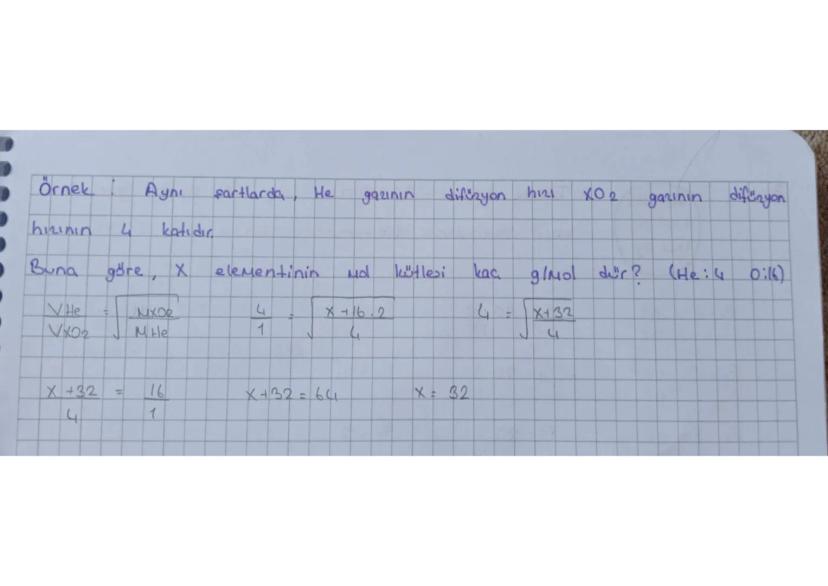 Örnek : Aynı şartlarda, He gazının difüzyon hızı XO2 gazının difüzyon
hızının 4 katıdır.
Buna göre, X elementinin mol kütlesi kaç g/mol dür? (He:4 O:16)
VHe/VXO2 = √(MXO2/MHe) 4/1 = √(X+16.2/4) 4 = √(X+32/4)
X+32/4 = 16/1 X+32=64 X=32